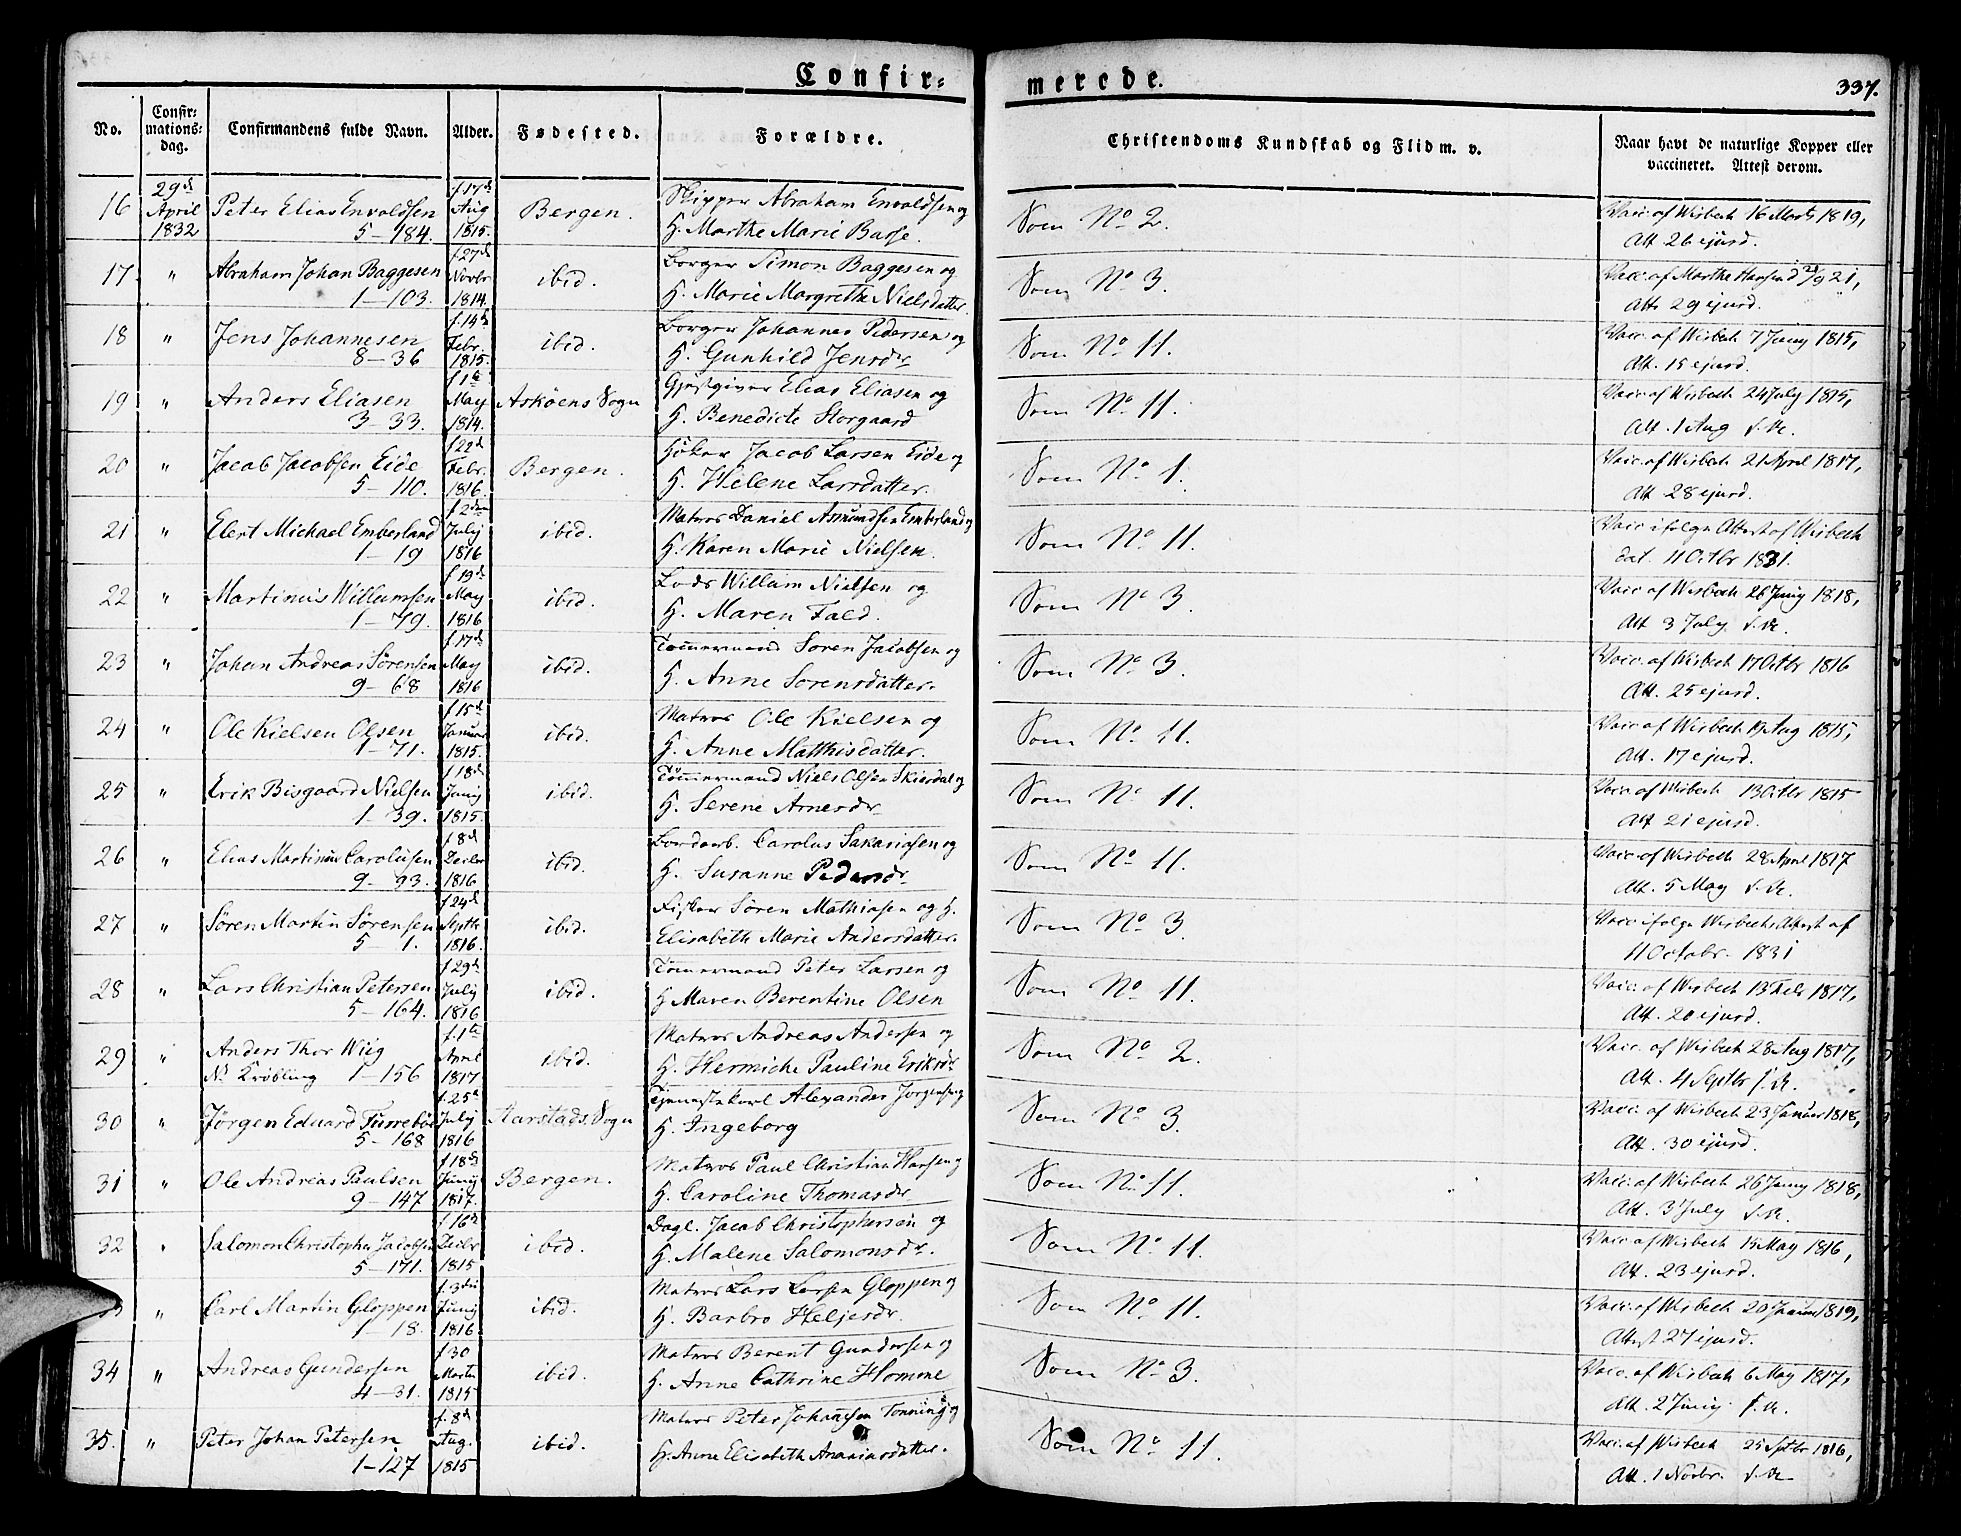 Confir=
merede.
337.
No.
Confir-
mations-
dag.
Confirmandens fulde Navn.
Alder.
Fødested.
Forældre.
Christendoms Kundskab og Flid m. v.
Naar havt de naturlige Kopper eller
vaccineret. Attest derom.
16 29d April 1832 Peter Elias Envoldsen 5–184. f. 17d Aug 1815. Bergen. Skipper Abraham Envoldsen og H. Marthe Marie Basse. Som No 2. Vacc. af Wisbech 16 Marts 1819, Att. 26 ejusd.
17 " Abraham Johan Baggesen 1–103. f. 27d Novbr 1814. ibid. Borger Simon Baggesen og H. Marie Margrethe Nielsdatter. Som No 3. Vacc. af Marthe Hansen d 21, Att. 29 ejusd.
18 " Jens Johannesen 8–36 f. 14d Febr. 1815. ibid. Borger Johannes Pedersen og H. Gunhild Jensdr Som No 11. Vacc. af Wisbech 7 Juny 1815, Att. 15 ejusd.
19 " Anders Eliasen 3–33. f. 1te May 1814. Askøens Sogn Gjæstgiver Elias Eliasen og H. Benedicte Storgaard Som No 11. Vacc. af Wisbech 24 July 1815, Att. 1 Aug s. A.
20 " Jacob Jacobsen Eide 5–110. f. 22d Febr. 1816. Bergen. Høker Jacob Larsen Eide og H. Helene Larsdatter. Som No 1. Vacc. af Wisbech 21 April 1817, Att. 28 ejusd.
21 " Elert Michael Emberland 1–19 f. 2den July 1816 ibid. Matros Daniel Asmundsen Emberland og H. Karen Marie Nielsen. Som No 11. Vacc. ifølge Attest af Wisbech dat. 11 Octbr 1831.
22 " Martinus Willumsen 1–79. f. 19de May 1816 ibid. Lods Willum Nielsen og H. Maren Fald. Som No 3. Vacc. af Wisbech 26 Juny 1818, Att. 3 July s. A.
23 " Johan Andreas Sørensen 9–68 f. 17d May 1816 ibid. Tømmermand Søren Jacobsen og H. Anne Sørensdatter. Som No 3. Vacc. af Wisbech 17 Octbr 1816 Att. 25 ejusd.
24 " Ole Kielsen Olsen 1–71. f. 15d Januar 1815. ibid. Matros Ole Kielsen og H. Anne Matthisdatter. Som No 11. Vacc. af Wisbech Aug 1815, Att. 17 ejusd.
25 " Erik Bisgaard Nielsen 1–39. f. 18d Juny 1815. ibid. Tømmermand Niels Olsen Skiesdal og H. Serene Arnesdr Som No 11. Vacc. af Wisbech 13 Octbr 1815 Att 21 ejusd.
26 " Elias Martinus Carolusen 9–93. f. 8d Decbr 1816 ibid. Bordarb. Carolus Sakariasen og H. Susanne Pedersdr Som No 11. Vacc. af Wisbech 28 April 1817 Att. 5 May s. A.
27 " Søren Martin Sørensen 5–1. f. 24d Septb 1816. ibid. Fisker Søren Mathiasen og H. Elisabeth Marie Andersdatter. Som No 3. Vacc. ifølge Wisbechs Attest af 11 Octobr. 1831
28 " Lars Christian Petersen 5–164. f. 29d July 1816 ibid. Tømmermand Peter Larsen og H Maren Berentine Olsen Som No 11. Vacc. af Wisbech 13 Feb 1817, Att. 20 ejusd.
29 " Anders Thor Wiig 1–156 f. 1te April 1817. ibid. Matros Andreas Andersen og H. Hermiche Pauline Eriksdr Som No 2. Vacc. af Wisbech 28 Aug 1817, Att. 4 Septbr s. A.
30 " Jørgen Eduard Furrebøe 5–168 f. 25d July 1816 Aarstads Sogn Tjenestekarl Alexander Jørgensen og H. Ingeborg Som No 3. Vacc. af Wisbech 23 Januar 1818, Att. 30 ejusd.
31 " Ole Andreas Paulsen 9–147 f. 18de Juny 1817. Bergen. Matros Paul Christian Hansen og H. Caroline Thomasdr Som No 11. Vacc. af Wisbech 26 Juny 1818, Att. 3 July s. A.
32 " Salomon Christopher Jacobsen 5–171. f. 16d Decbr 1815 ibid. Dagl. Jacob Christophersen og H. Malene Salomonsdr. Som No 11. Vacc. af Wisbech 15 May 1816, Att. 23 ejusd.
" Carl Martin Gloppen 1–18. f. 3die Juny 1816. ibid. Matros Lars Larsen Gloppen og H. Barbro Heljesdr. Som No 11. Vacc. af Wisbech 20 Januar 1819, Attest 27 ejusd.
34 " Andreas Gundersen 4–31. f. 30 Marts 1815 ibid. Matros Berent Gundersen og H. Anne Cathrine Homme Som No 3. Vacc. af Wisbech 6 May 1817, Att. 2 Juny s. A.
35. " Peter Johan Petersen 1–127 f. 8d Aug. 1815 ibid. Matros Peter Johannesen Tonning og H. Anne Elisabeth Ananiasdatter. Som No 11. Vacc. af Wisbech 25 Septbr 1816, Att. 1 Novbr. s. A.